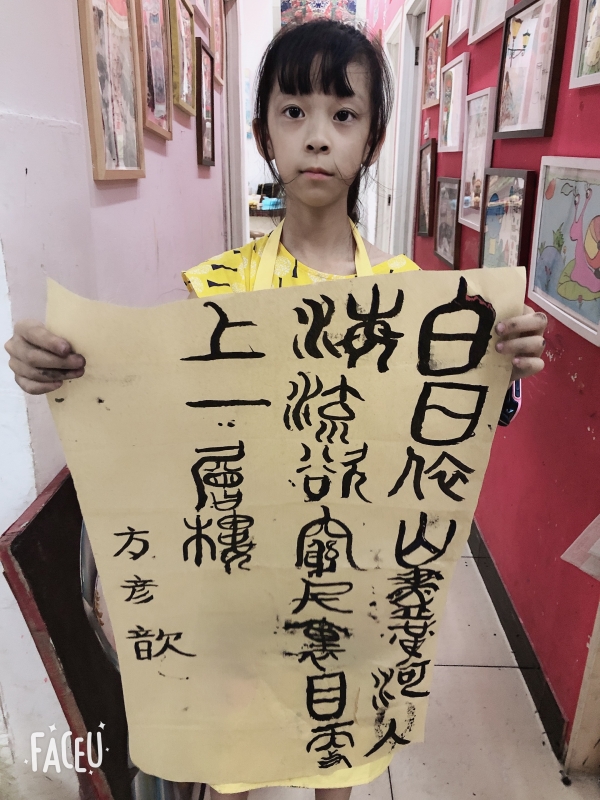 白日依山盡黃河入
海流欲窮千裏目更
上一層樓
方彦歆
FACEU